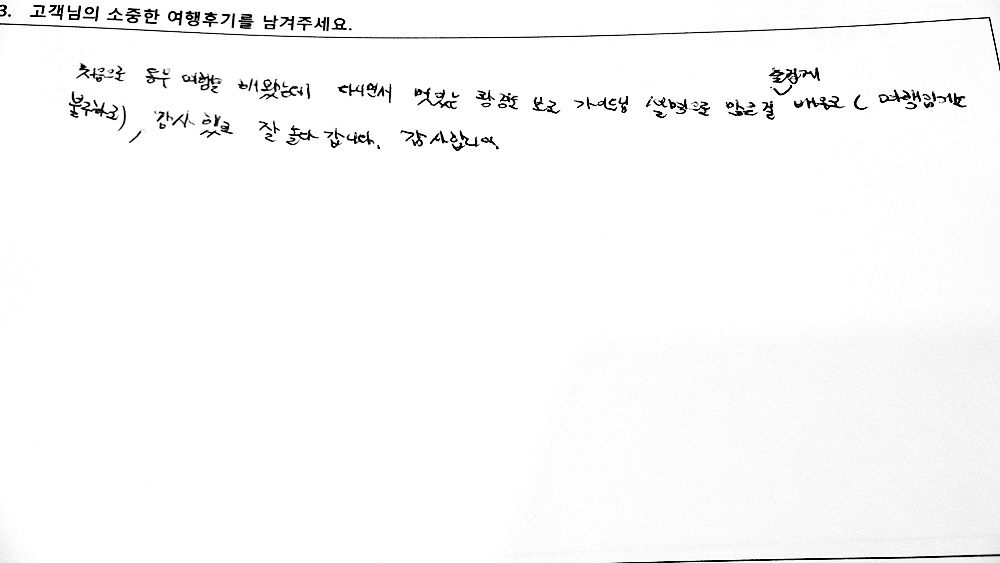 3. 고객님의 소중한 여행후기를 남겨주세요.
처음으로 동부 여행을 해봤는데 다니면서 멋있는 광경도 보고 가이드님 설명으로 많은걸 즐겁게 배우고 ( 여행임에도
불구하고), 감사했고 잘 놀다 갑니다. 감사합니다.